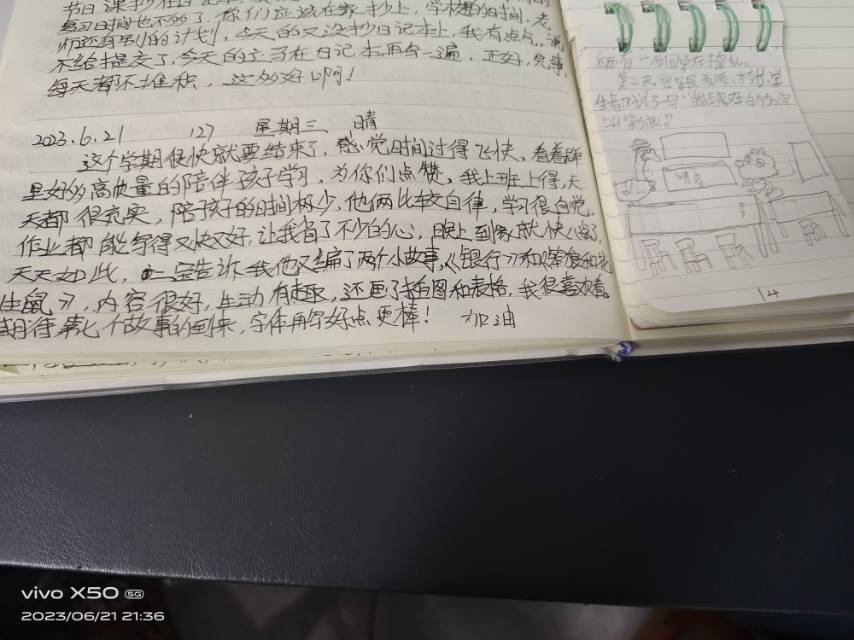 复习日时间也不够了，你们应该在家抄上，学校里的时间，老
师还有别的计划，今天的又没抄日记本上，我有点气，说
不给提交了，今天的立马在日记本再写一遍，正好，完事，
每天都不堆积，这多好啊！
2023.6.21 127 星期三 晴
这个学期很快就要结束了，感觉时间过得飞快，看着群
里好多高质量的陪伴孩子学习，为你们点赞，我上班上得，天
天都很充实，陪孩子的时间极少，他俩比较自律，学习很自觉，
作业都能写得又快又好，让我省了不少的心，晚上到家就快八点了，
天天如此，二宝告诉我他又编了两个小故事，《银行》和《
鼠》，内容很好，生动有趣，还画了插图和表格，我很喜欢看，
期待第七个故事的到来，字体再写好点更棒！ 加油
第二天
14
vivo X50 5G
2023/06/21 21:36